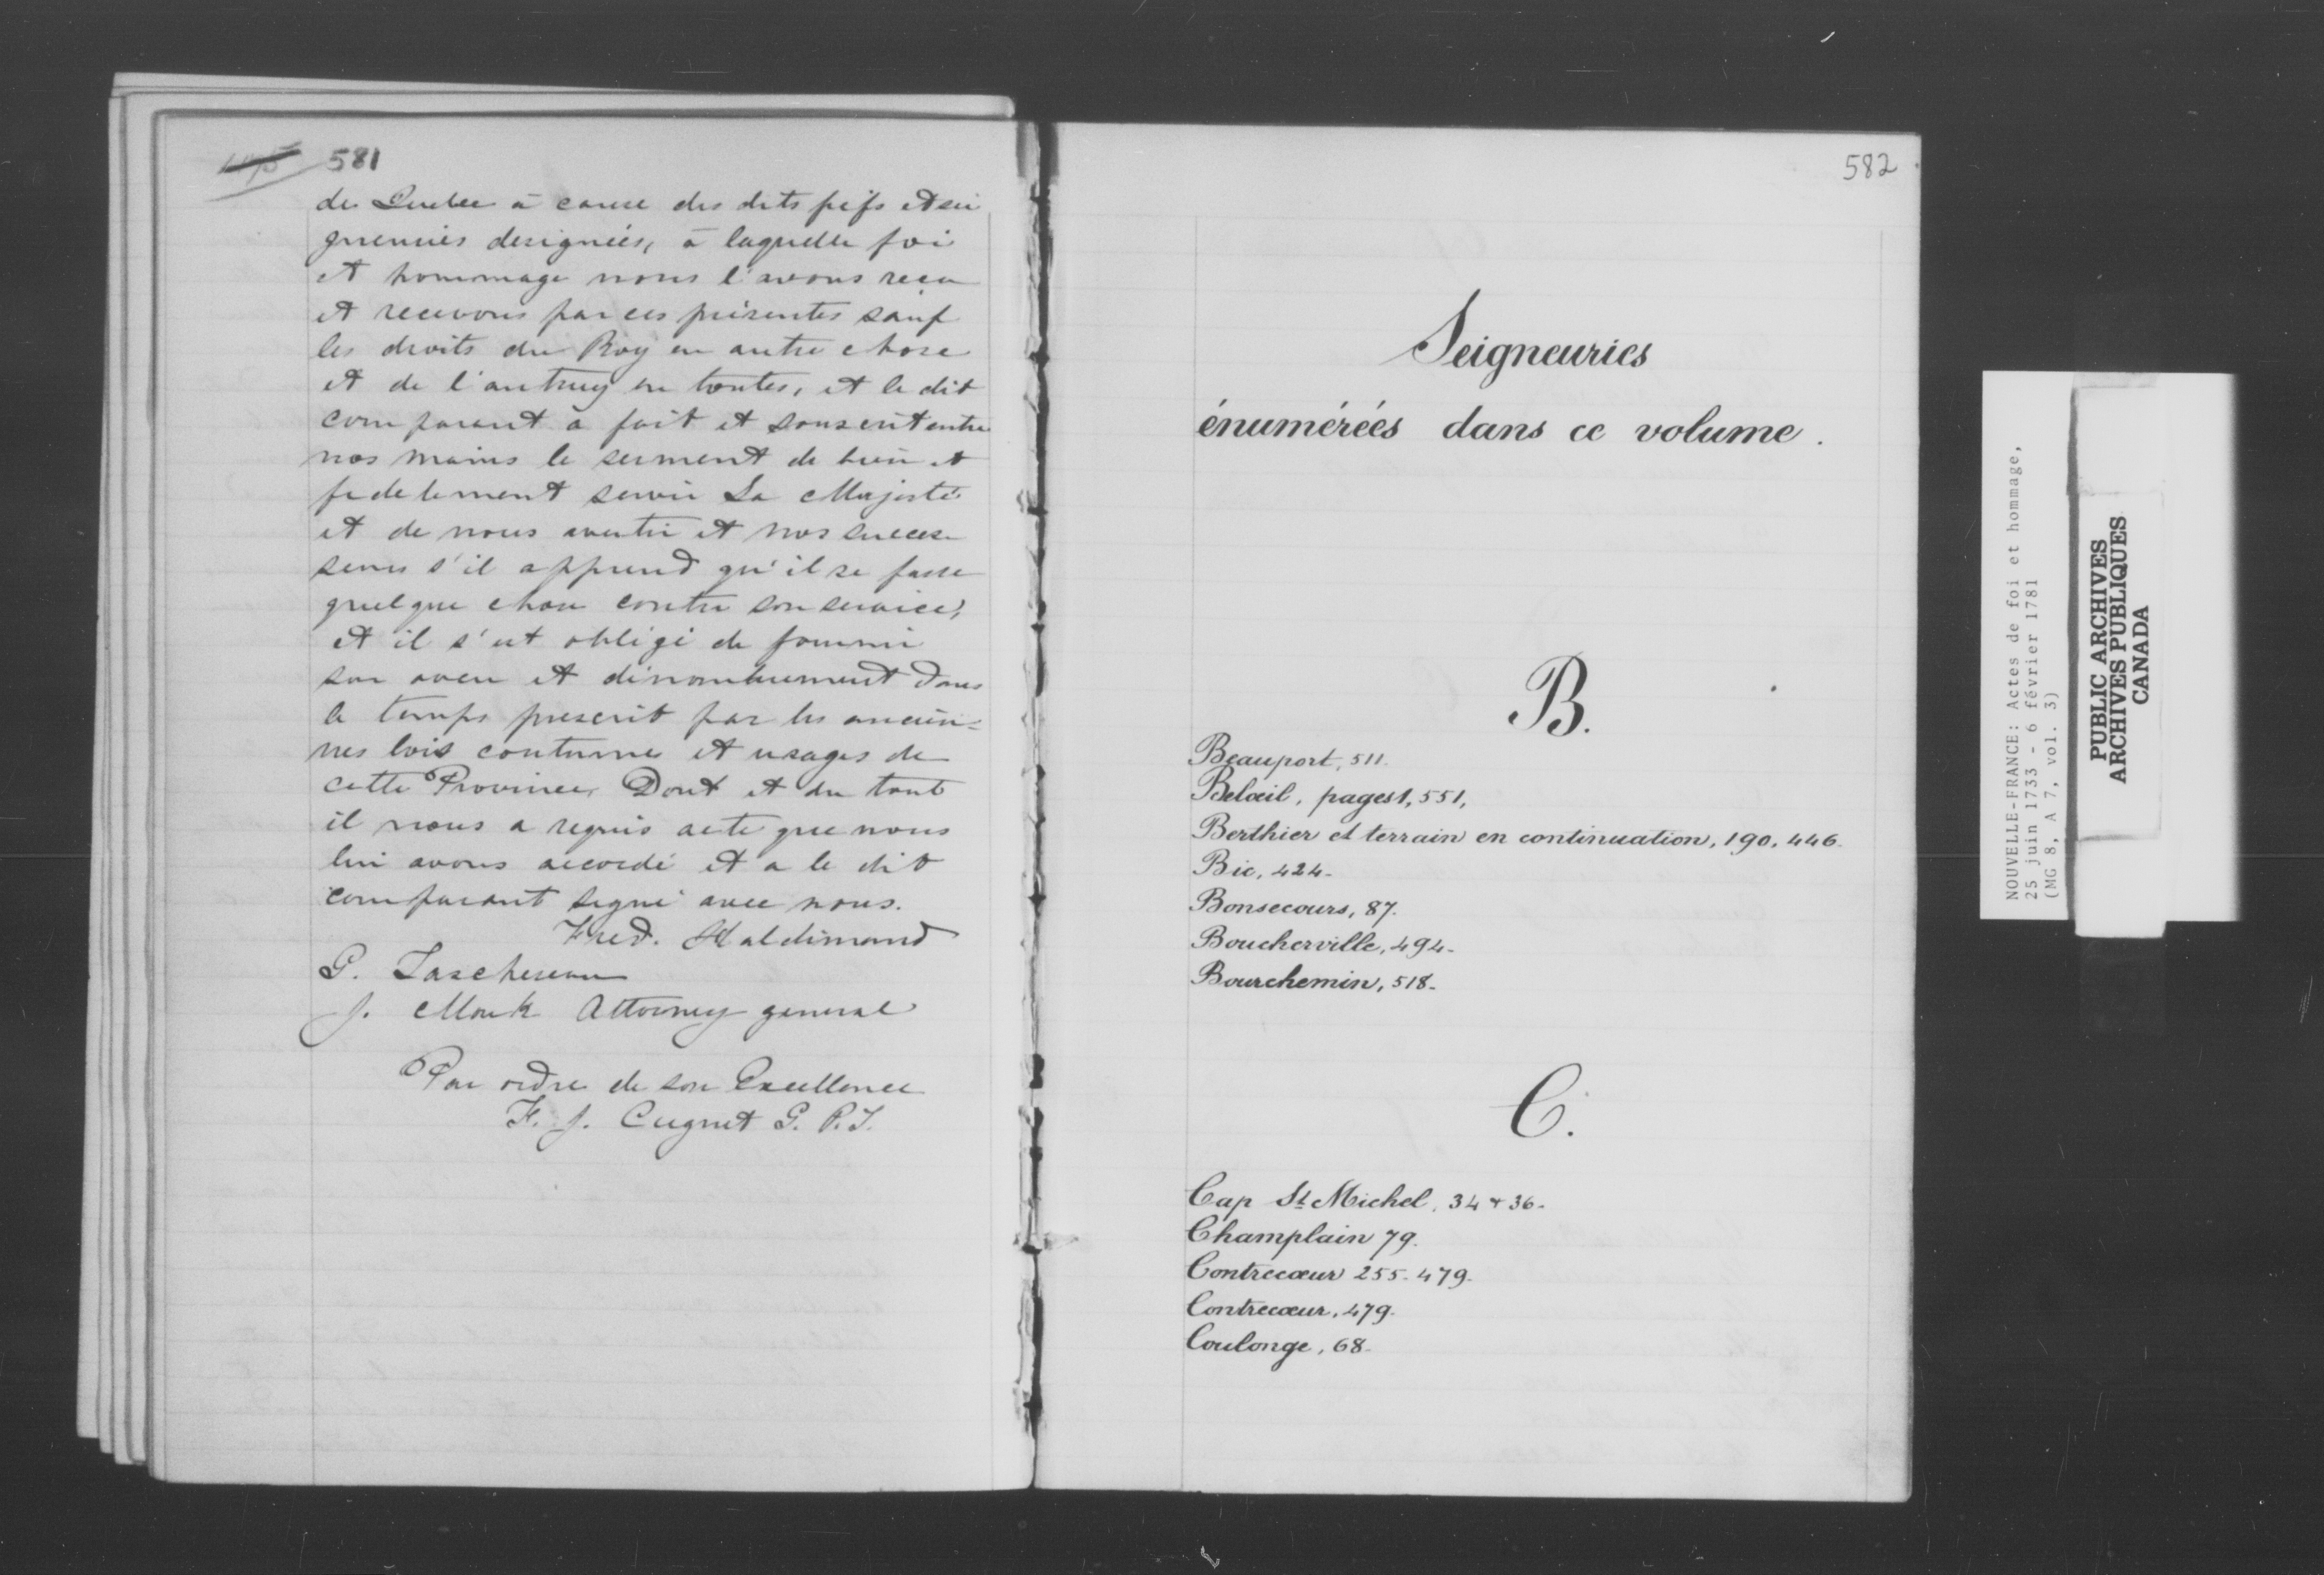 581
de Quebec à cause des dits fiefs et sei
gneuries designées, à laquelle foi
et hommage nous l'avons reçu
et recevons par ces présentes sauf
les droits du Roy en autre chose
et de l'autruy en toutes, et le dit
comparant à fait et souscrit entre
nos mains le serment de bien et
fidelement servir Sa Majesté
et de nous avertir et nos succes
seurs s'il apprend qu'il se fasse
quelque chose contre son service,
et il s'est obligé de fournir
son aveu et dénombrement dans
le temps prescrit par les ancien-
nes lois coutumes et usages de
cette Province, Dont et du tout
il nous a requis acte que nous
lui avons accordé et a le dit
comparant signé avec nous.
Fred. Haldimand
G. Taschereau
J. Monk Attorney general
Par ordre de son Excellence
F. J. Cugnet G. P. T.
582
Seigneuries
énuméréés dans ce volume.
B.
Beauport, 511.
Belœil, pages 1, 551,
Berthier et terrain en continuation, 190. 446.
Bic, 424-
Bonsecours, 87.
Boucherville, 494-
Bourchemin, 518-
C.
Cap St Michel, 34 & 36-
Champlain 79.
Contrecœur 255. 479.
Contrecœur, 479.
Coulonge, 68-
NOUVELLE-FRANCE: Actes de foi et hommage,
25 juin 1733 - 6 février 1781
(MG 8, A 7, vol. 3)
PUBLIC ARCHIVES
ARCHIVES PUBLIQUES
CANADA